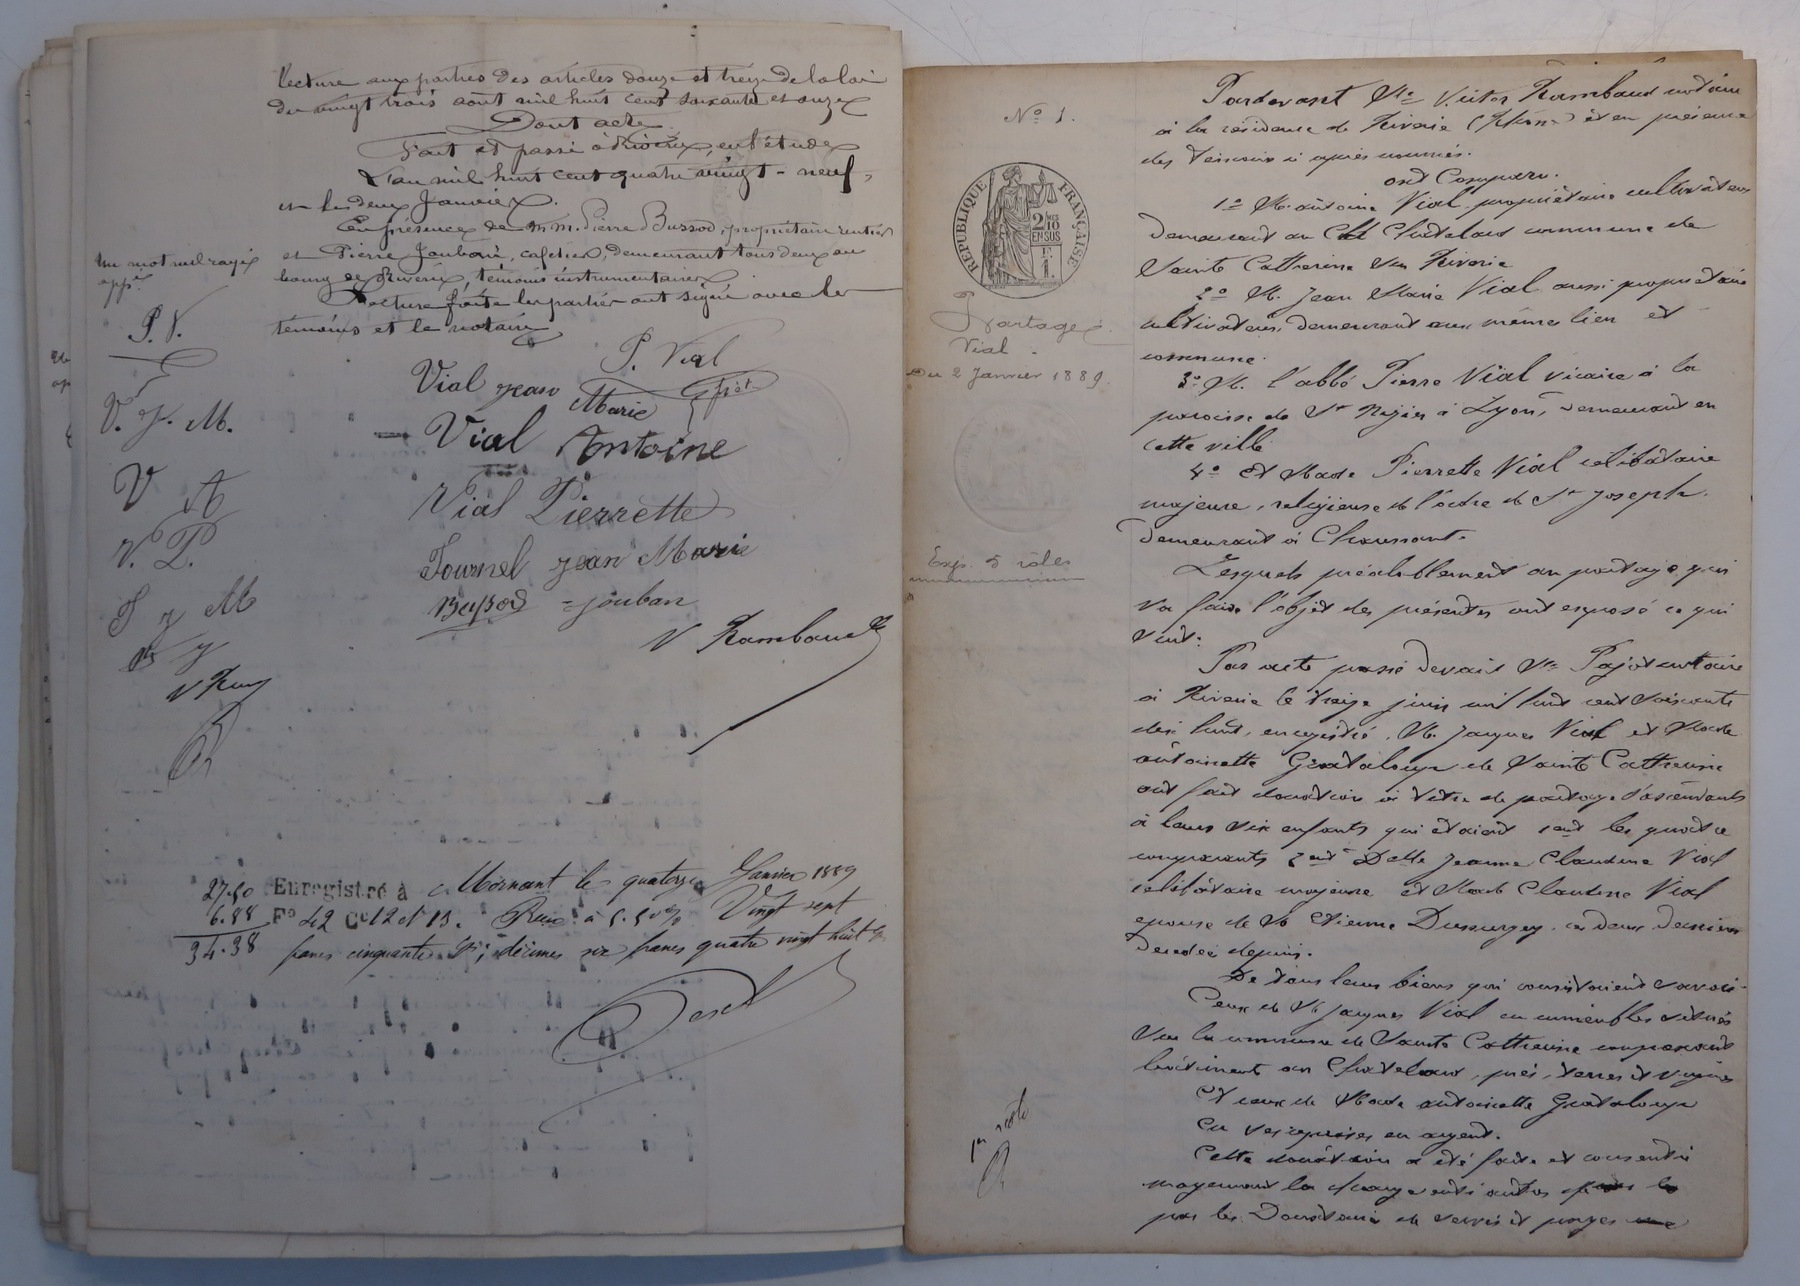 Lecture aux parties des articles douze et treize de la loi
du vingt trois août mil huit cent soixante et onze
Dont acte
Fait et passé à Riverie, en l'étude
L'an mil huit cent quatre vingt-neuf,
et le deux Janvier.
En présence de MM. Pierre Bussod, propriétaire rentier
et Pierre Jouban, cafetier, demeurant tous deux au
bourg de Riverie, témoins instrumentaires
Lecture faite les parties ont signé avec les
témoins et le notaire
Un mot nul rayé
app.
P. V.
V. J. M.
V A
V. P.
F J M
P. Vial
Vial Jean Marie
Vial Antoine
Vial Pierrette
Fournel Jean Marie
Bussod Jouban
V Rambaud
27.50
6.88
34.38
Enregistré à Mornant le quatorze Janvier 1889
F° 42 C° 12 et 13. Reçu à Vingt sept
francs cinquante décimes six francs quatre vingt huit c
N° 1.
RÉPUBLIQUE FRANÇAISE
2/10 EN SUS
1 F.
Partage
Vial
Du 2 Janvier 1889.
Exp. 5 rôles
1er rôle
Pardevant Me Victor Rambaud notaire
à la résidence de Riverie (Rhône) et en présence
des témoins ci après nommés.
ont Comparu.
1° M. Antoine Vial propriétaire cultivateur
demeurant au Chatelard commune de
Sainte Catherine sur Riverie
2° M. Jean Marie Vial aussi propriétaire
cultivateur, demeurant aux mêmes lieu et
commune.
3° M. l'abbé Pierre Vial vicaire à la
paroisse de St à Lyon, demeurant en
cette ville
4° Et Made Pierrette Vial célibataire
majeure, religieuse de l'ordre de St Joseph.
demeurant à Chaussant.
Lesquels préalablement au partage qui
va faire l'objet des présentes ont exposé ce qui
suit:
Par acte passé devant Me Pajot notaire
à Riverie le treize juin mil huit cent soixante
dix huit, enregistré, M. Jacques Vial et Made
Antoinette de Sainte Catherine
ont fait donation à titre de partage d'ascendants
à leurs six enfants qui étaient les quatre
comparants Delle Jeanne Claudine Vial
célibataire majeure et Made Claudine Vial
épouse de M Etienne Dussurgey. ces deux dernières
décédées depuis.
De tous leurs biens qui consistaient savoir
Ceux de M. Jacques Vial en immeubles situés
sur la commune de Sainte Catherine comprenant
bâtiment au Chatelard, prés, terres et vignes
Et ceux de Made Antoinette
En ses reprises en argent.
Cette donation a été faite et consentie
moyennant la charge entr'autres
par les Donataires de servir et payer